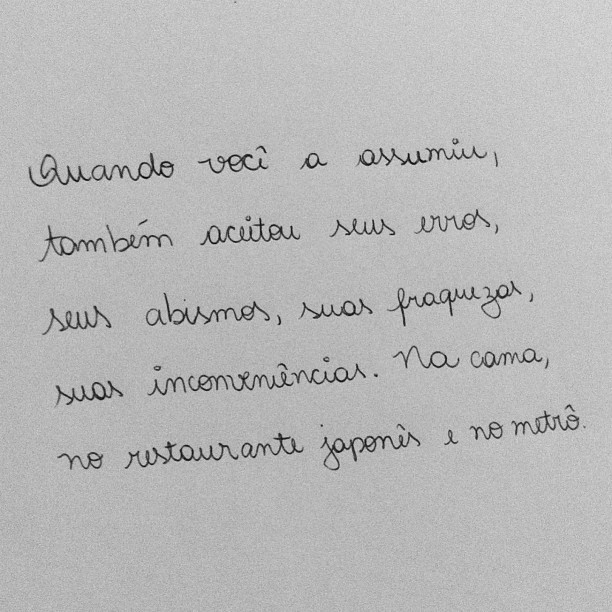 Quando você a assumiu,
também aceitou seus erros,
seus abismos, suas fraquezas,
suas inconveniências. Na cama,
no restaurante japonês e no metrô.